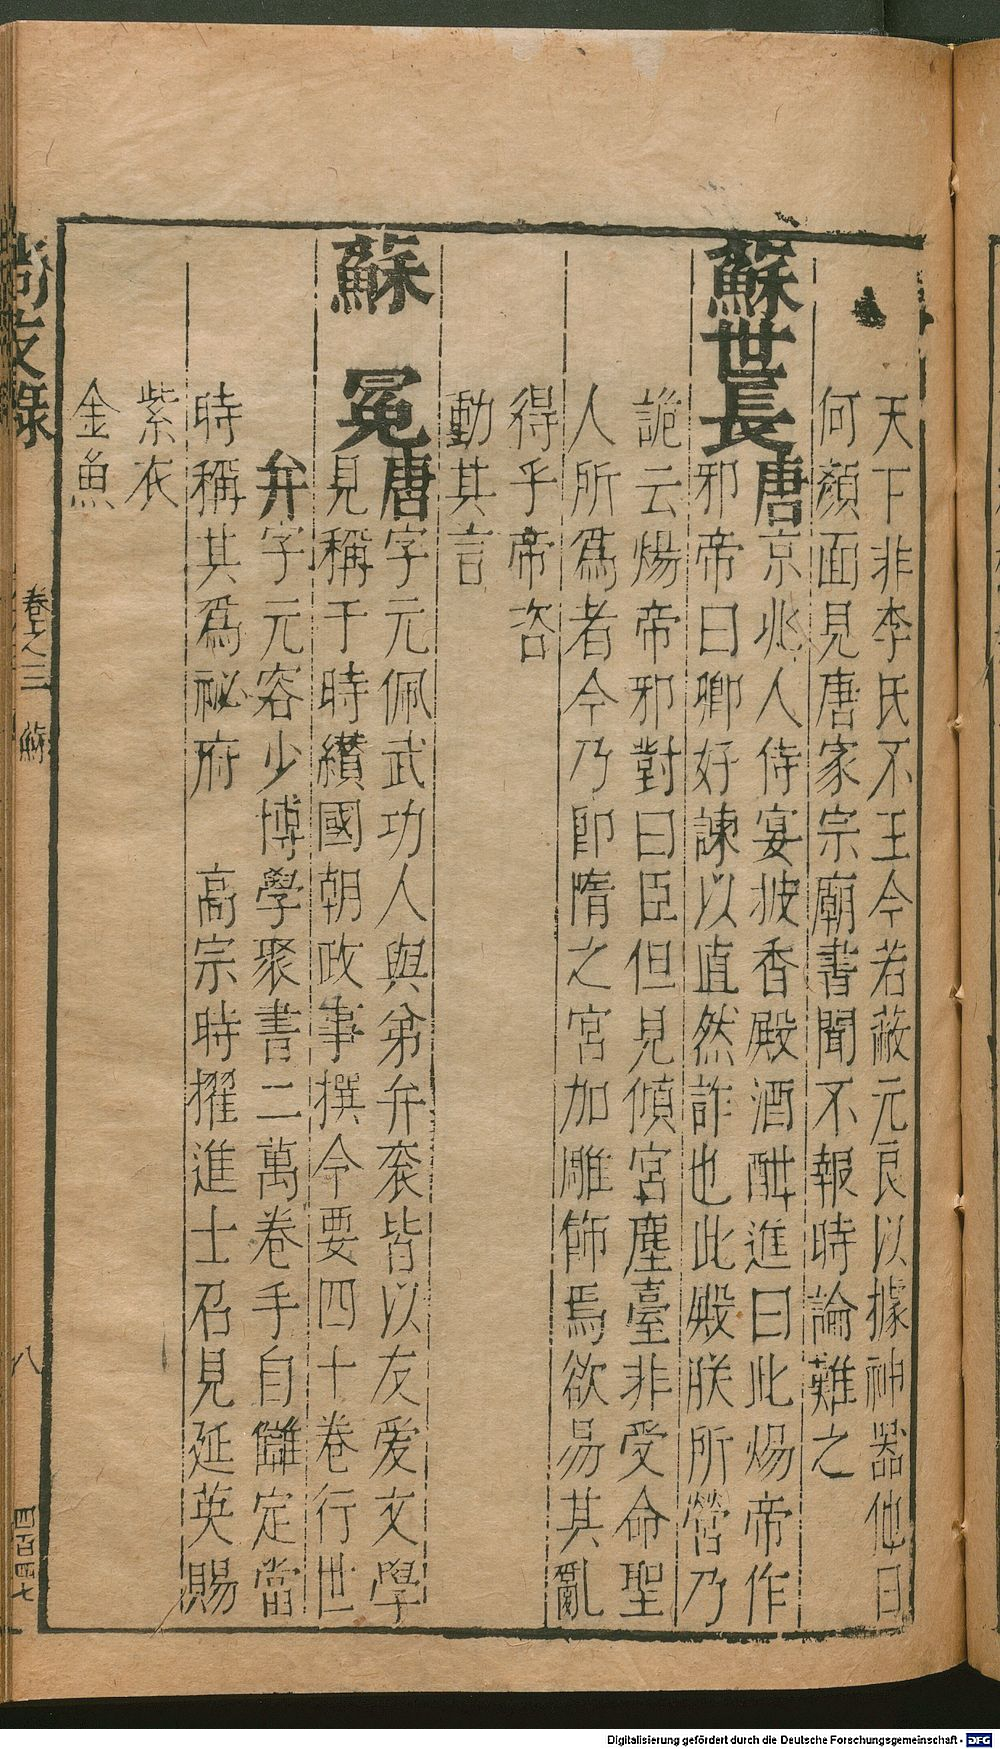 天下非李氏不王今若蔽元良以據神器他日
何顏面見唐家宗廟書聞不報時論難之
蘇世長唐京兆人侍宴披香殿酒酣進曰此煬帝作
邪帝曰卿好諫以直然詐也此殿朕所營乃
詭云煬帝邪對曰臣但見傾宮塵臺非受命聖
人所爲者今乃即隋之宮加雕飾焉欲易其亂
得乎帝咨
動其言
蘇冕唐字元佩武功人與弟弁衮皆以友爱文學
見稱于時纘國朝政事撰今要四十卷行世
弁字元容少博學聚書二萬卷手自讎定當
時稱其爲祕府 高宗時擢進士召見延英賜
紫衣
金魚
尚友錄 卷之三 蘇 八 四百四七
Digitalisierung gefördert durch die Deutsche Forschungsgemeinschaft - DFG